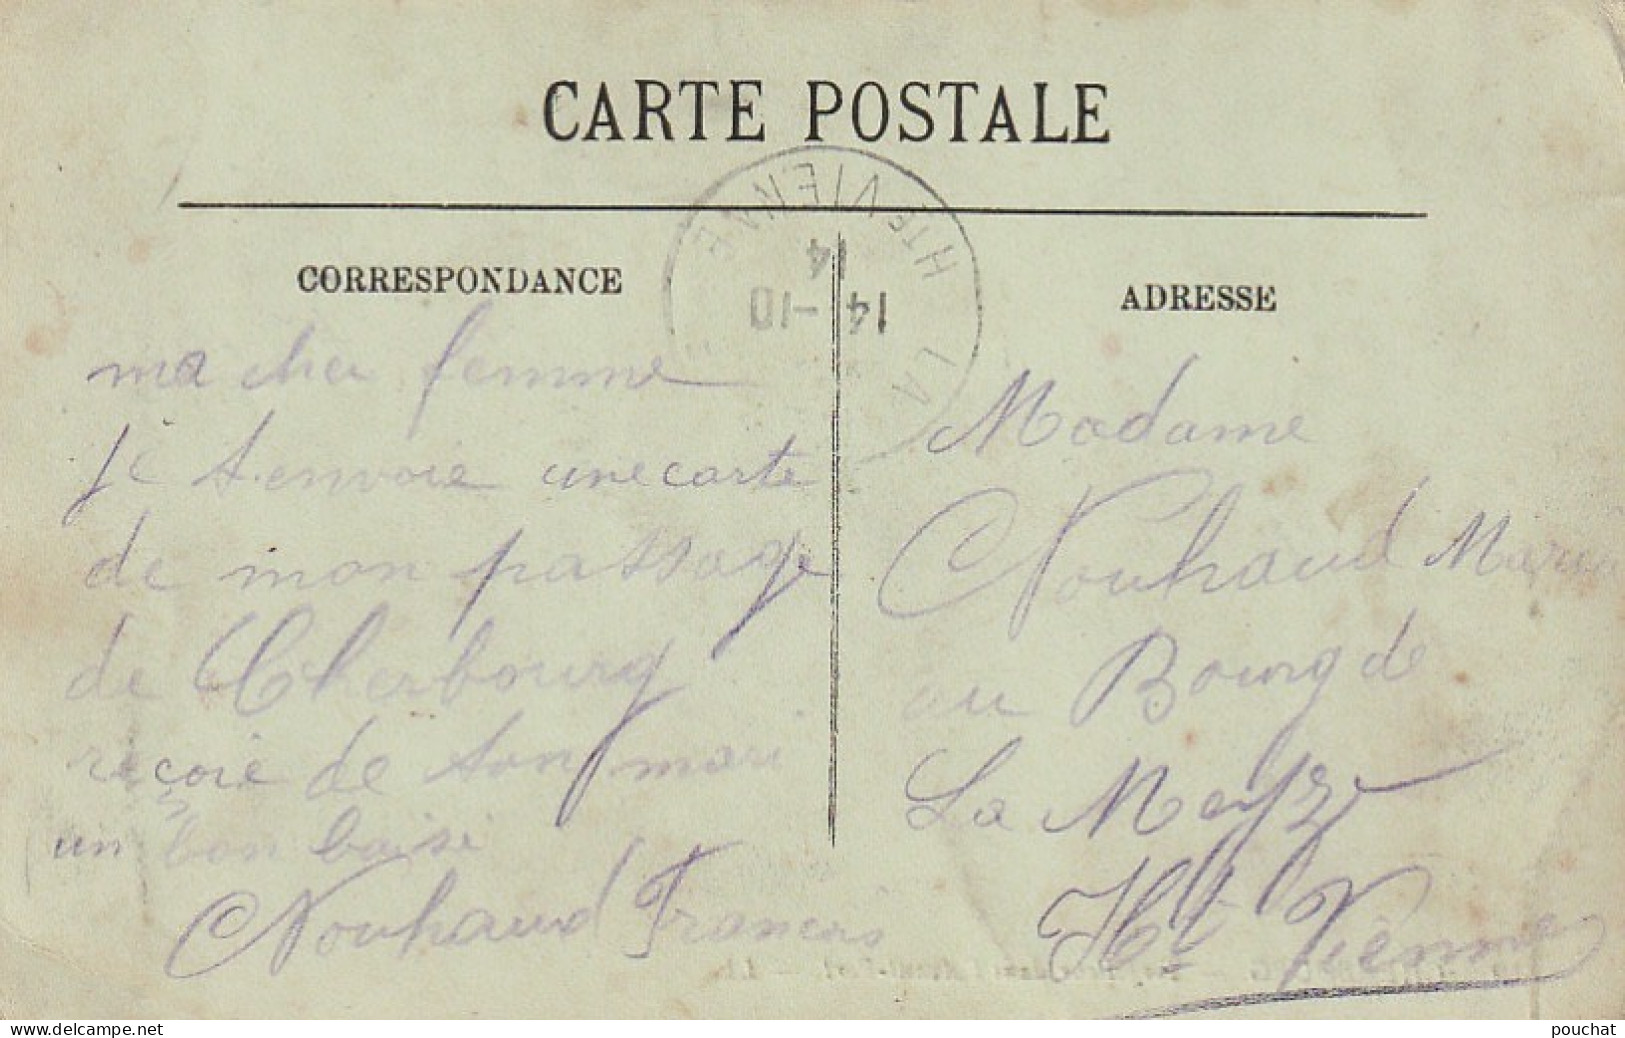 CARTE POSTALE
CORRESPONDANCE
ma cher femme
je t.envoie une carte
de mon passage
de Cherbourg
reçoie de ton mari
un bon baisé
Nouhaud Francois
ADRESSE
Madame
Nouhaud Marie
au Bourg de
La Meyze
Hte Vienne
LA
Hte VIENNE
14 -10
14
delcampe.net
pouchat